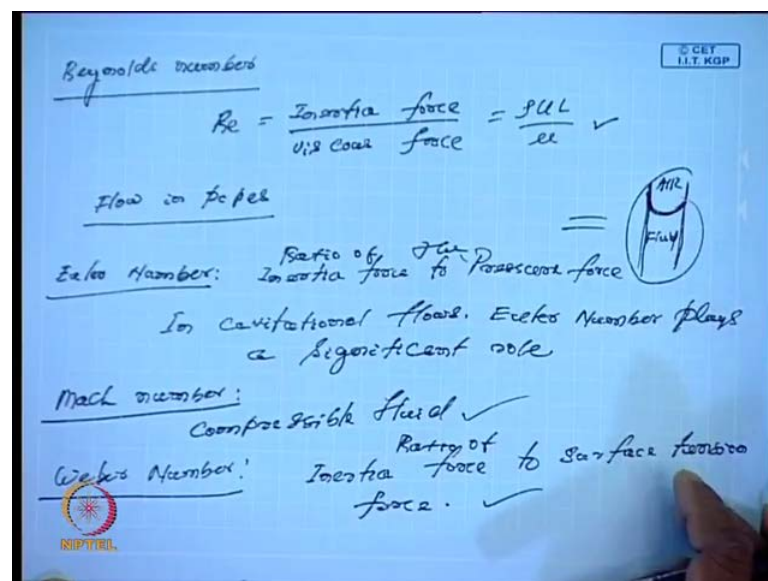 © CET
I.I.T. KGP
Reynolds number
Re = Inertia force / viscous force = ρUL / μ ✓
Flow in pipes
AIR
Fluid
Euler Number: Ratio of the Inertia force to Pressure force
In cavitational flows. Euler Number plays
a significant role
Mach number:
Compressible fluid ✓
Weber Number: Ratio of Inertia force to Surface tension
force. ✓
NPTEL